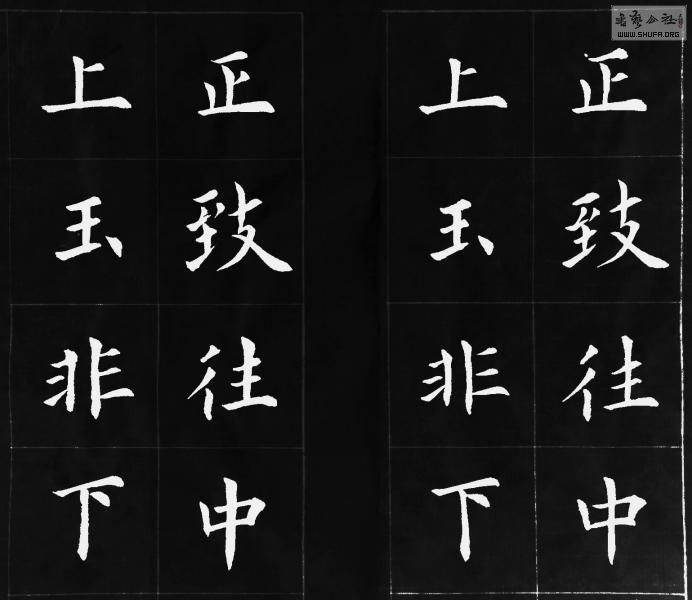 正致往中
上玉非下
正致往中
上玉非下
書藝公社
WWW.SHUFA.ORG